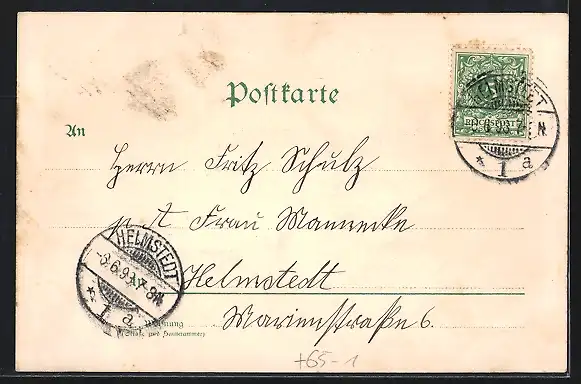 Postkarte
An
Herrn Fritz Schulz
p. A Frau Mannecke
Helmstedt
Marienstraße 6.
Wohnung
(Straße und Hausnummer)
REICHSPOST
HELMSTEDT
-8.6.99.7-8N.
* 1 a
* 1 a
+65-1